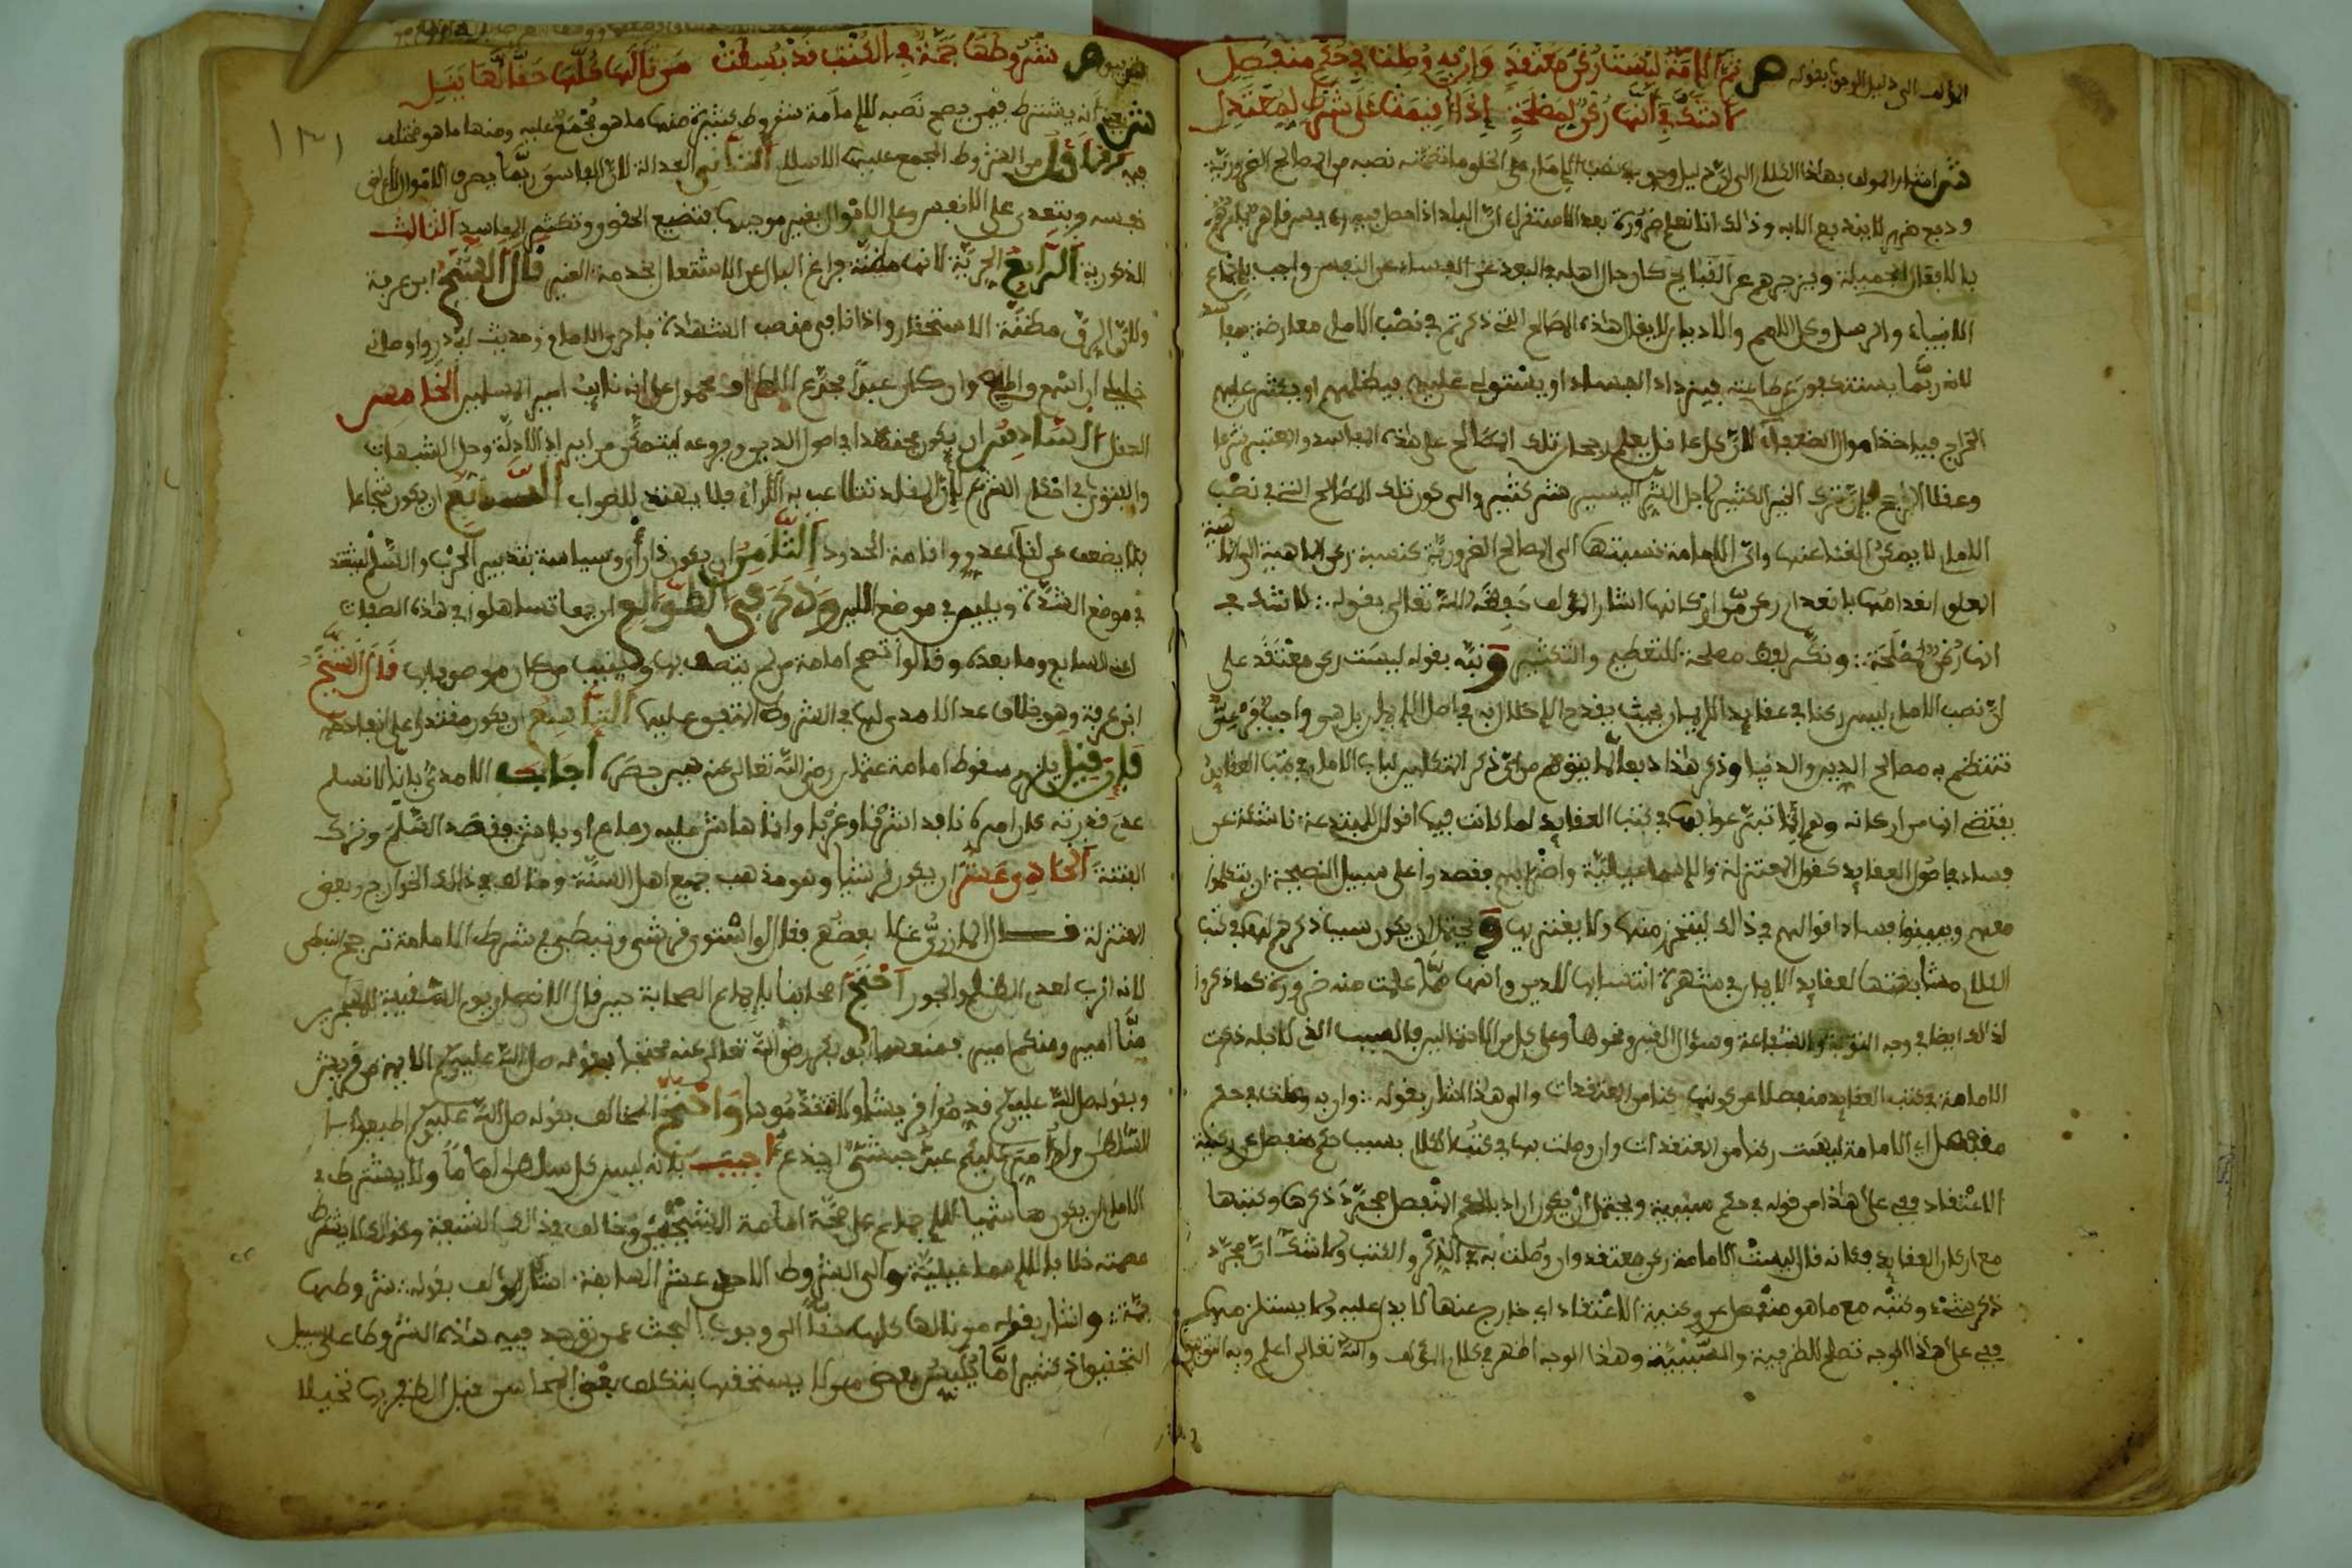 المؤلف الى دليل الوجوب بقوله ص ثم الامامة ليست ركن معتقد وان به وصلت في حكم منفصل
لا شك في انها ركن لمصلحة
شر اشار المؤلف بهاذا الكلام الى ان دليل وجوب نصب الامام على الخلق ما تضمنه نصبه من المصالح الضرورية
ودفع ضرر لا يندفع الا به وذلك انا نعلم ضرورة بعد الاستقراء ان البلد اذا حصل فيه رئيس قاهر
بالافعال الجميلة ويزجرهم عن القبايح كان حال اهله في البعد عن الفساد
الانبياء والرسل وكل الامم والاديان لا يقال هذه المصالح التي ذكرتم في نصب الامام معارضة بمفاسد
لانه ربما يستنكفون عن طاعته فيزداد الفساد او يستولي عليهم فيظلمهم او يكثر عليهم
الخراج فياخذ اموال الضعفاء لان كل عاقل يعلم رجحان تلك المصالح على هذه المفاسد والمعتبر شرعا
وعقلا الراجح فان ترك الخير الكثير لاجل الشر اليسير شر كثير والى كون تلك المصالح التي في نصب
الامام لا يمكن الغنا عنها وان الامامة نسبتها الى المصالح الضرورية كنسبة ركن الماهية الى الماهية
انعدامها بانعدام ركن من اركانها اشار المؤلف رحمه الله تعالى بقوله لا شك في
انها ركن لمصلحة ونكر لفظ مصلحة للتعظيم والتكثير ونبه بقوله ليست ركن معتقد على
ان نصب الامام ليس ركنا في عقايد الايمان بحيث يقدح الاخلال به في اصل الايمان بل هو واجب فرعي
تنتظم به مصالح الدين والدنيا وذكر هذا دفعا لما يتوهم من ان ذكر المتكلمين لباب الامام في كتب العقايد
يقتضي انها من اركانه وهم انما تبرعوا بها في كتب العقايد لما كانت فيها اقوال للمبتدعة ناشئة عن
فساد في اصول العقايد كقول المعتزلة والاسماعيلية واضرابهم فقصدوا على سبيل النصيحة ان يتكلموا
معهم ويبينوا فساد اقوالهم في ذلك ليتحرز منها ولا يغتر بها ويحتمل ان يكون سبب ذكرهم لها في كتب
الكلام مشابهتها لعقايد الايمان في شهرة انتسابها للدين وانها مما علمت منه ضرورة كما ذكروا
لذلك ايضا في وجه التوبة والشفاعة وسؤال القبر ونحوها وعلى كل من الاحتمالين فالسبب الذي لاجله ذكرت
الامامة في كتب العقايد منفصل عن كونها ركنا من المعتقدات والى هذا اشار بقوله وان به وصلت في حكم
منفصل اي الامامة ليست ركنا من المعتقدات وان وصلت بها في كتب الكلام بسبب حكم منفصل عن ركنية
الاعتقاد ففي على هذا من قوله في حكم سببية ويحتمل ان يكون اراد بالحكم المنفصل مجرد ذكرها وكتبها
مع اركان العقايد فكانه قال ليست الامامة ركن معتقد وان وصلت به في الذكر والكتب ولا شك ان مجرد
ذكر شيء وكتبه مع ما هو منفصل عن ركنية الاعتقاد اي خارج عنها لا يدل عليه ولا يستلزمها
ففي على هذا الوجه تصلح للظرفية والسببية وهذا الوجه اظهر في كلام المؤلف والله تعالى اعلم وبه التوفيق
ص شروطها جمة في الكتب قد بسطت من نالها كلها حقا لها ينل
شر يعني انه يشترط فيمن يصح نصبه للامامة شروط كثيرة منها ما هو مجمع عليه ومنها ما هو مختلف
فيه فالاول من الشروط المجمع عليها الاسلام الثاني العدالة لان الفاسق ربما يصرف الاموال لاغراض
نفسه ويتعدى على الانفس وعلى الاموال بغير موجب فتضيع الحقوق وتكثر المفاسد الثالث
الذكورية الرابع الحرية لانها مظنة فراغ البال عن الاشتغال بخدمة الغير قال الشيخ ابن عرفة
ولان الرق مظنة الاستحقار واذا نافى منصب الشهادة فاحرى الامام وحديث ابي ذر اوصاني
خليلي ان اسمع واطيع وان كان عبدا مجدع الاطراف محمول على انه نايب امير المسلمين الخامس
العقل السادس ان يكون مجتهدا في اصول الدين وفروعه ليتمكن من ايراد الادلة وحل الشبهات
والفتوى في احكام الشرع لان المقلد تتلاعب به الآراء فلا يهتدي للصواب السابع ان يكون شجاعا
فلا يضعف عن لقاء عدو واقامة الحدود الثامن ان يكون ذا رأي وسياسة بتدبير الحرب والسلم ليشتد
في موضع الشدة ويلين في موضع اللين وذكر في الطوالع ان جمعا تساهلوا في هذه الصفات
اعني السابع وما بعده وقالوا تصح امامة من لم يتصف بها ويستنيب من كان موصوفا بها قال الشيخ
ابن عرفة وهو خلاف عد الامدي لها في الشروط المتفق عليها التاسع ان يكون مقتدرا على انفاذ حكمه
فان قيل يلزم سقوط امامة عثمان رضي الله تعالى عنه حين حصره اجاب الامدي بانا لا نسلم
عدم قدرته كان امره نافذا شرقا وغربا وانما هاش عليه رعاع اوباش فقصد السلم وترك
الفتنة الحادي عشر ان يكون قرشيا وهو مذهب جميع اهل السنة وخالف في ذلك الخوارج وبعض
المعتزلة قال المازري غلا بعضهم فقال لو استوى قرشي ونبطي في شرط الامامة ترجح النبطي
لانه اقرب لعدم الظلم والجور احتج اصحابنا باجماع الصحابة حين قال الانصار يوم السقيفة للمهاجرين
منا امير ومنكم امير فمنعهم ابو بكر رضي الله تعالى عنه محتجا بقوله صلى الله عليه وسلم الايمة من قريش
وبقوله صلى الله عليه وسلم قدموا قريشا ولا تقدموها واحتج المخالف بقوله صلى الله عليه وسلم اطيعوا
السلطان ولو امر عليكم عبد حبشي اجدع اجيب بانه ليس كل سلطان اماما ولا يشترط في
الامام ان يكون هاشميا للاجماع على صحة امامة الشيخين وخالف في ذلك الشيعة وكذلك لا يشترط
عصمته خلافا للاسماعيلية والى الشروط الاحدى عشر السابقة اشار المؤلف بقوله شروطها
جمة واشار بقوله من نالها كلها حقا الى وجوب البحث عمن توجد فيه هذه الشروط على سبيل
التحقيق اذ كثير اما يلبس بعض من لا يستحقها بتكلف بعض المحاسن قبل الظفر بها تحيلا